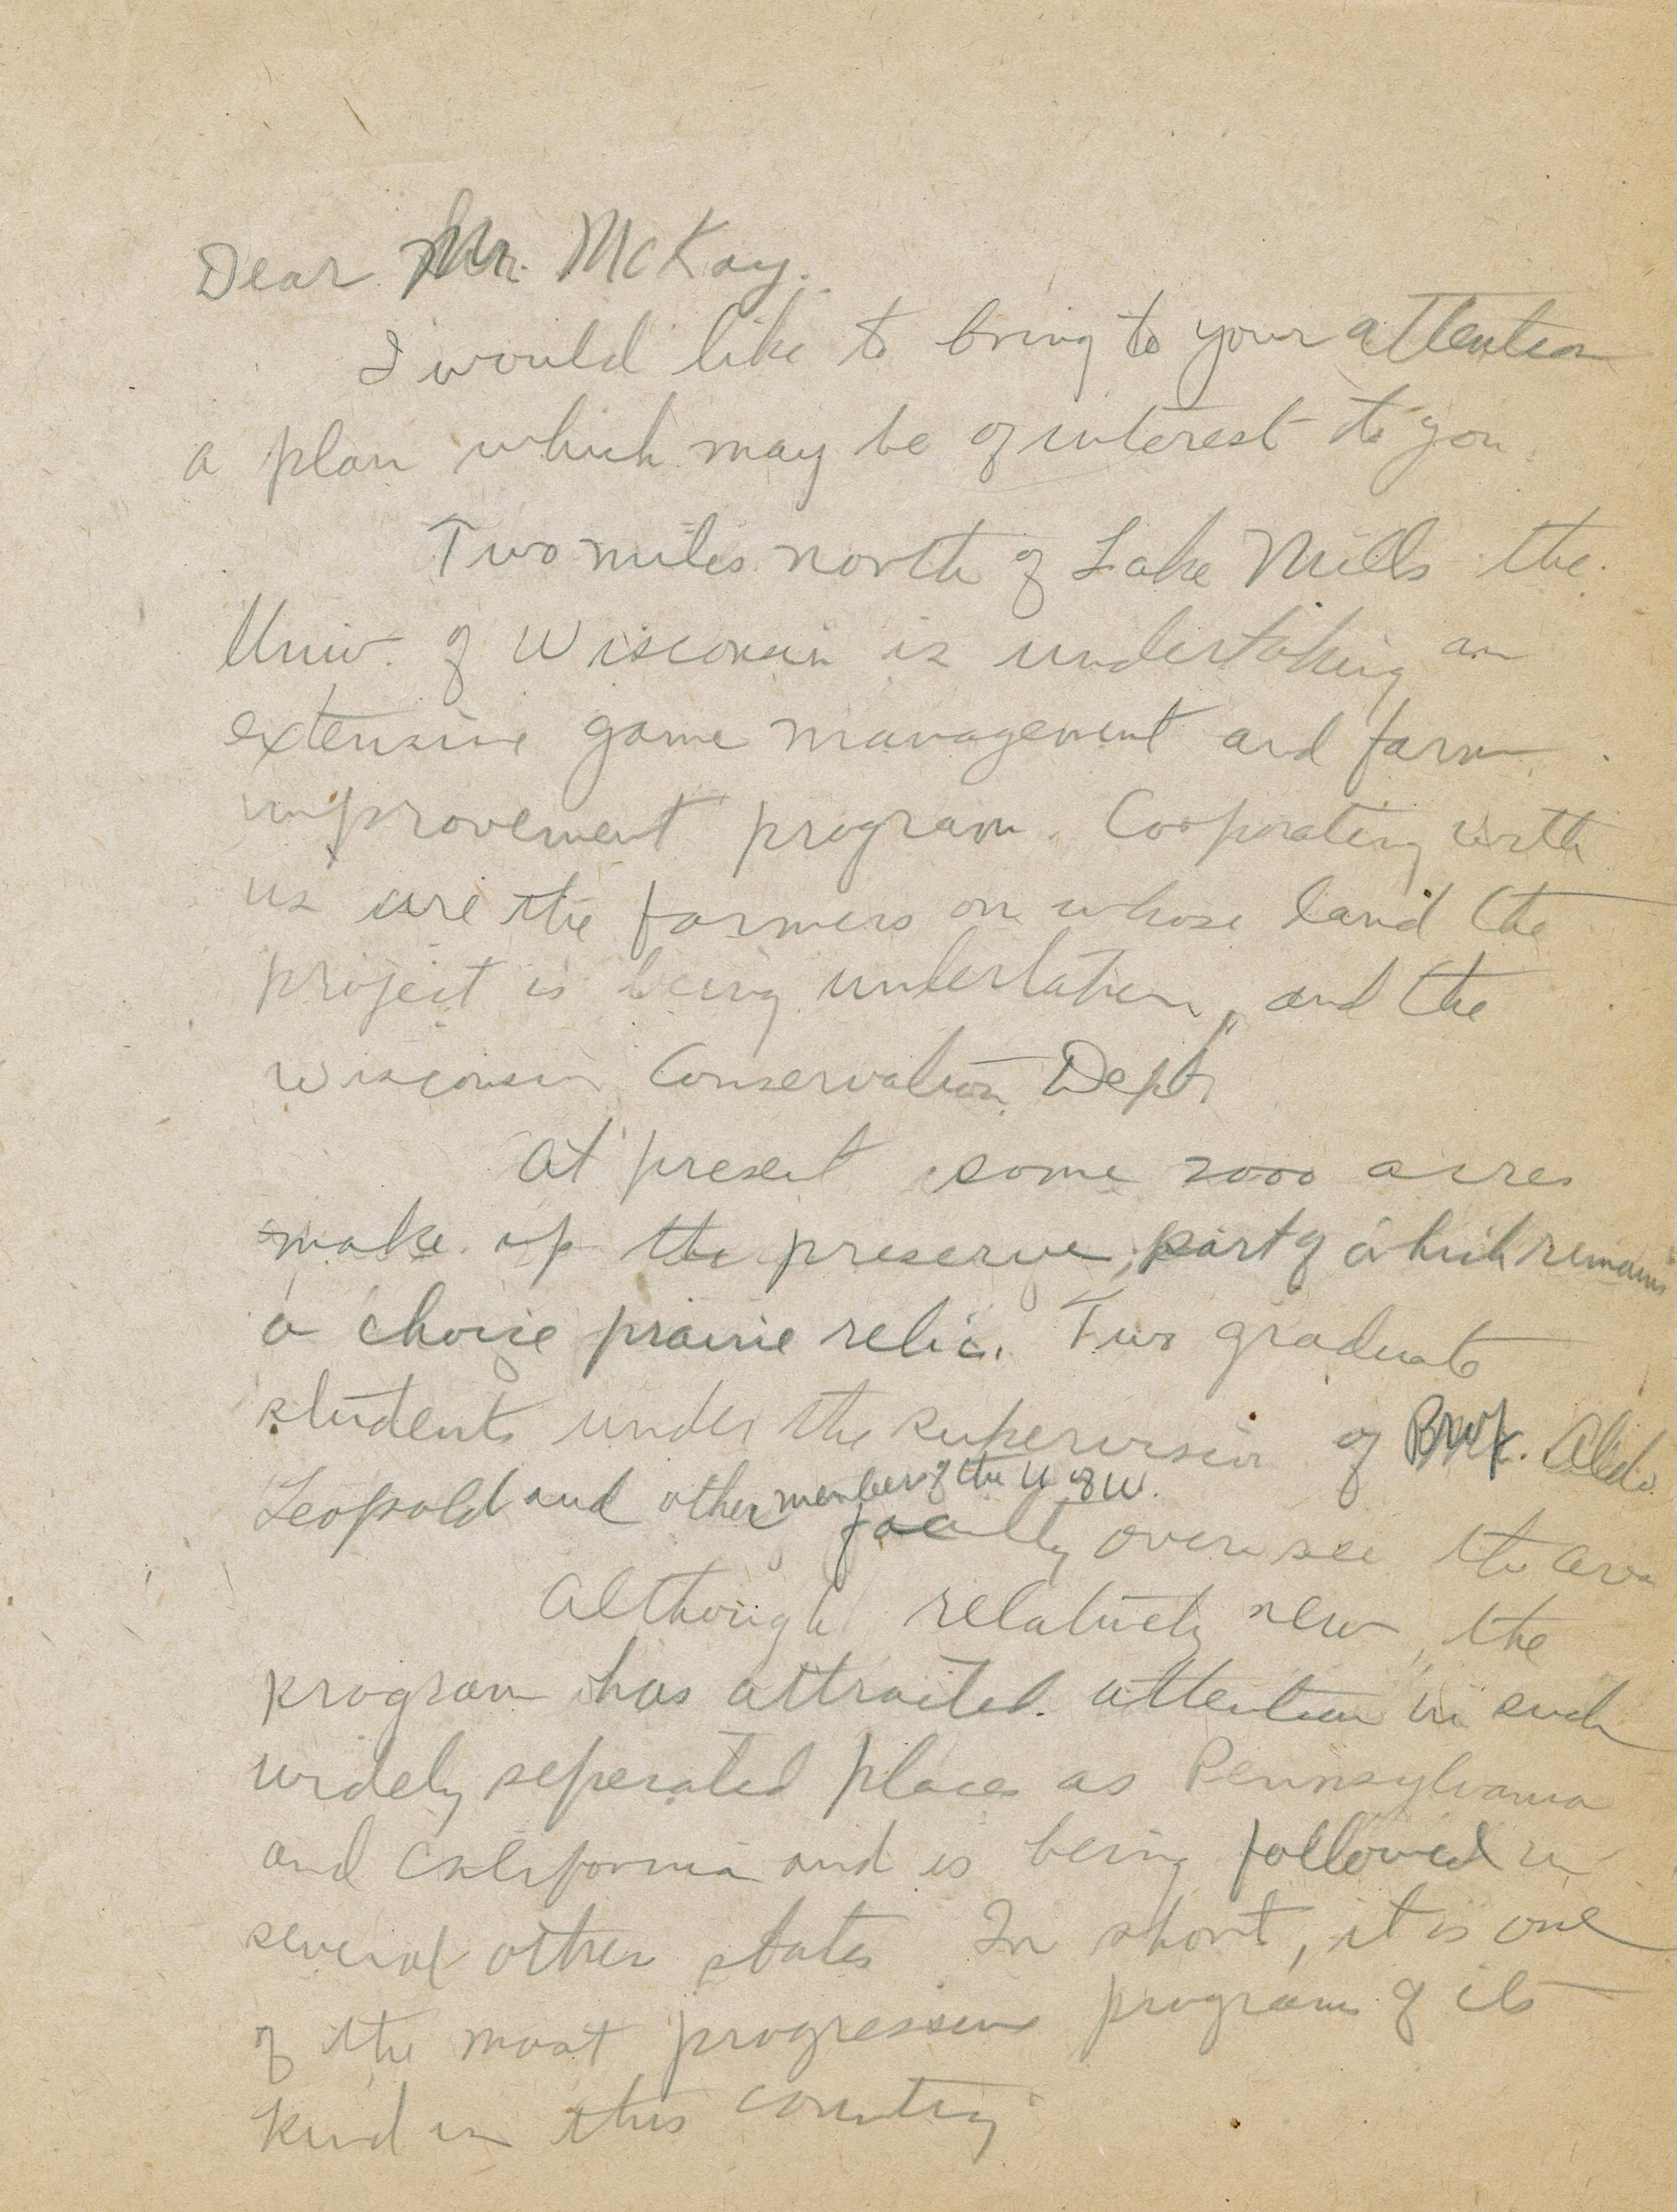 Dear Mr. McKay.
I would like to bring to your attention
a plan which may be of interest to you.
Two miles north of Lake Mills the
Univ. of Wisconsin is undertaking an
extensive game management and farm
improvement program. Cooperating with
us are the farmers on whose land the
project is being undertaken, and the
Wisconsin Conservation Dept.
At present some 2000 acres
make up the preserve, part of which remains
a choice prairie relic. Two graduate
students under the supervision of Aldo
Leopold and other member of the U of W.
faculty oversee the area
Although relatively new, the
program has attracted attention in such
widely seperated places as Pennsylvania
and California and is being followed in
several other states In short, it is one
of the most progressive programs of its
kind in this country